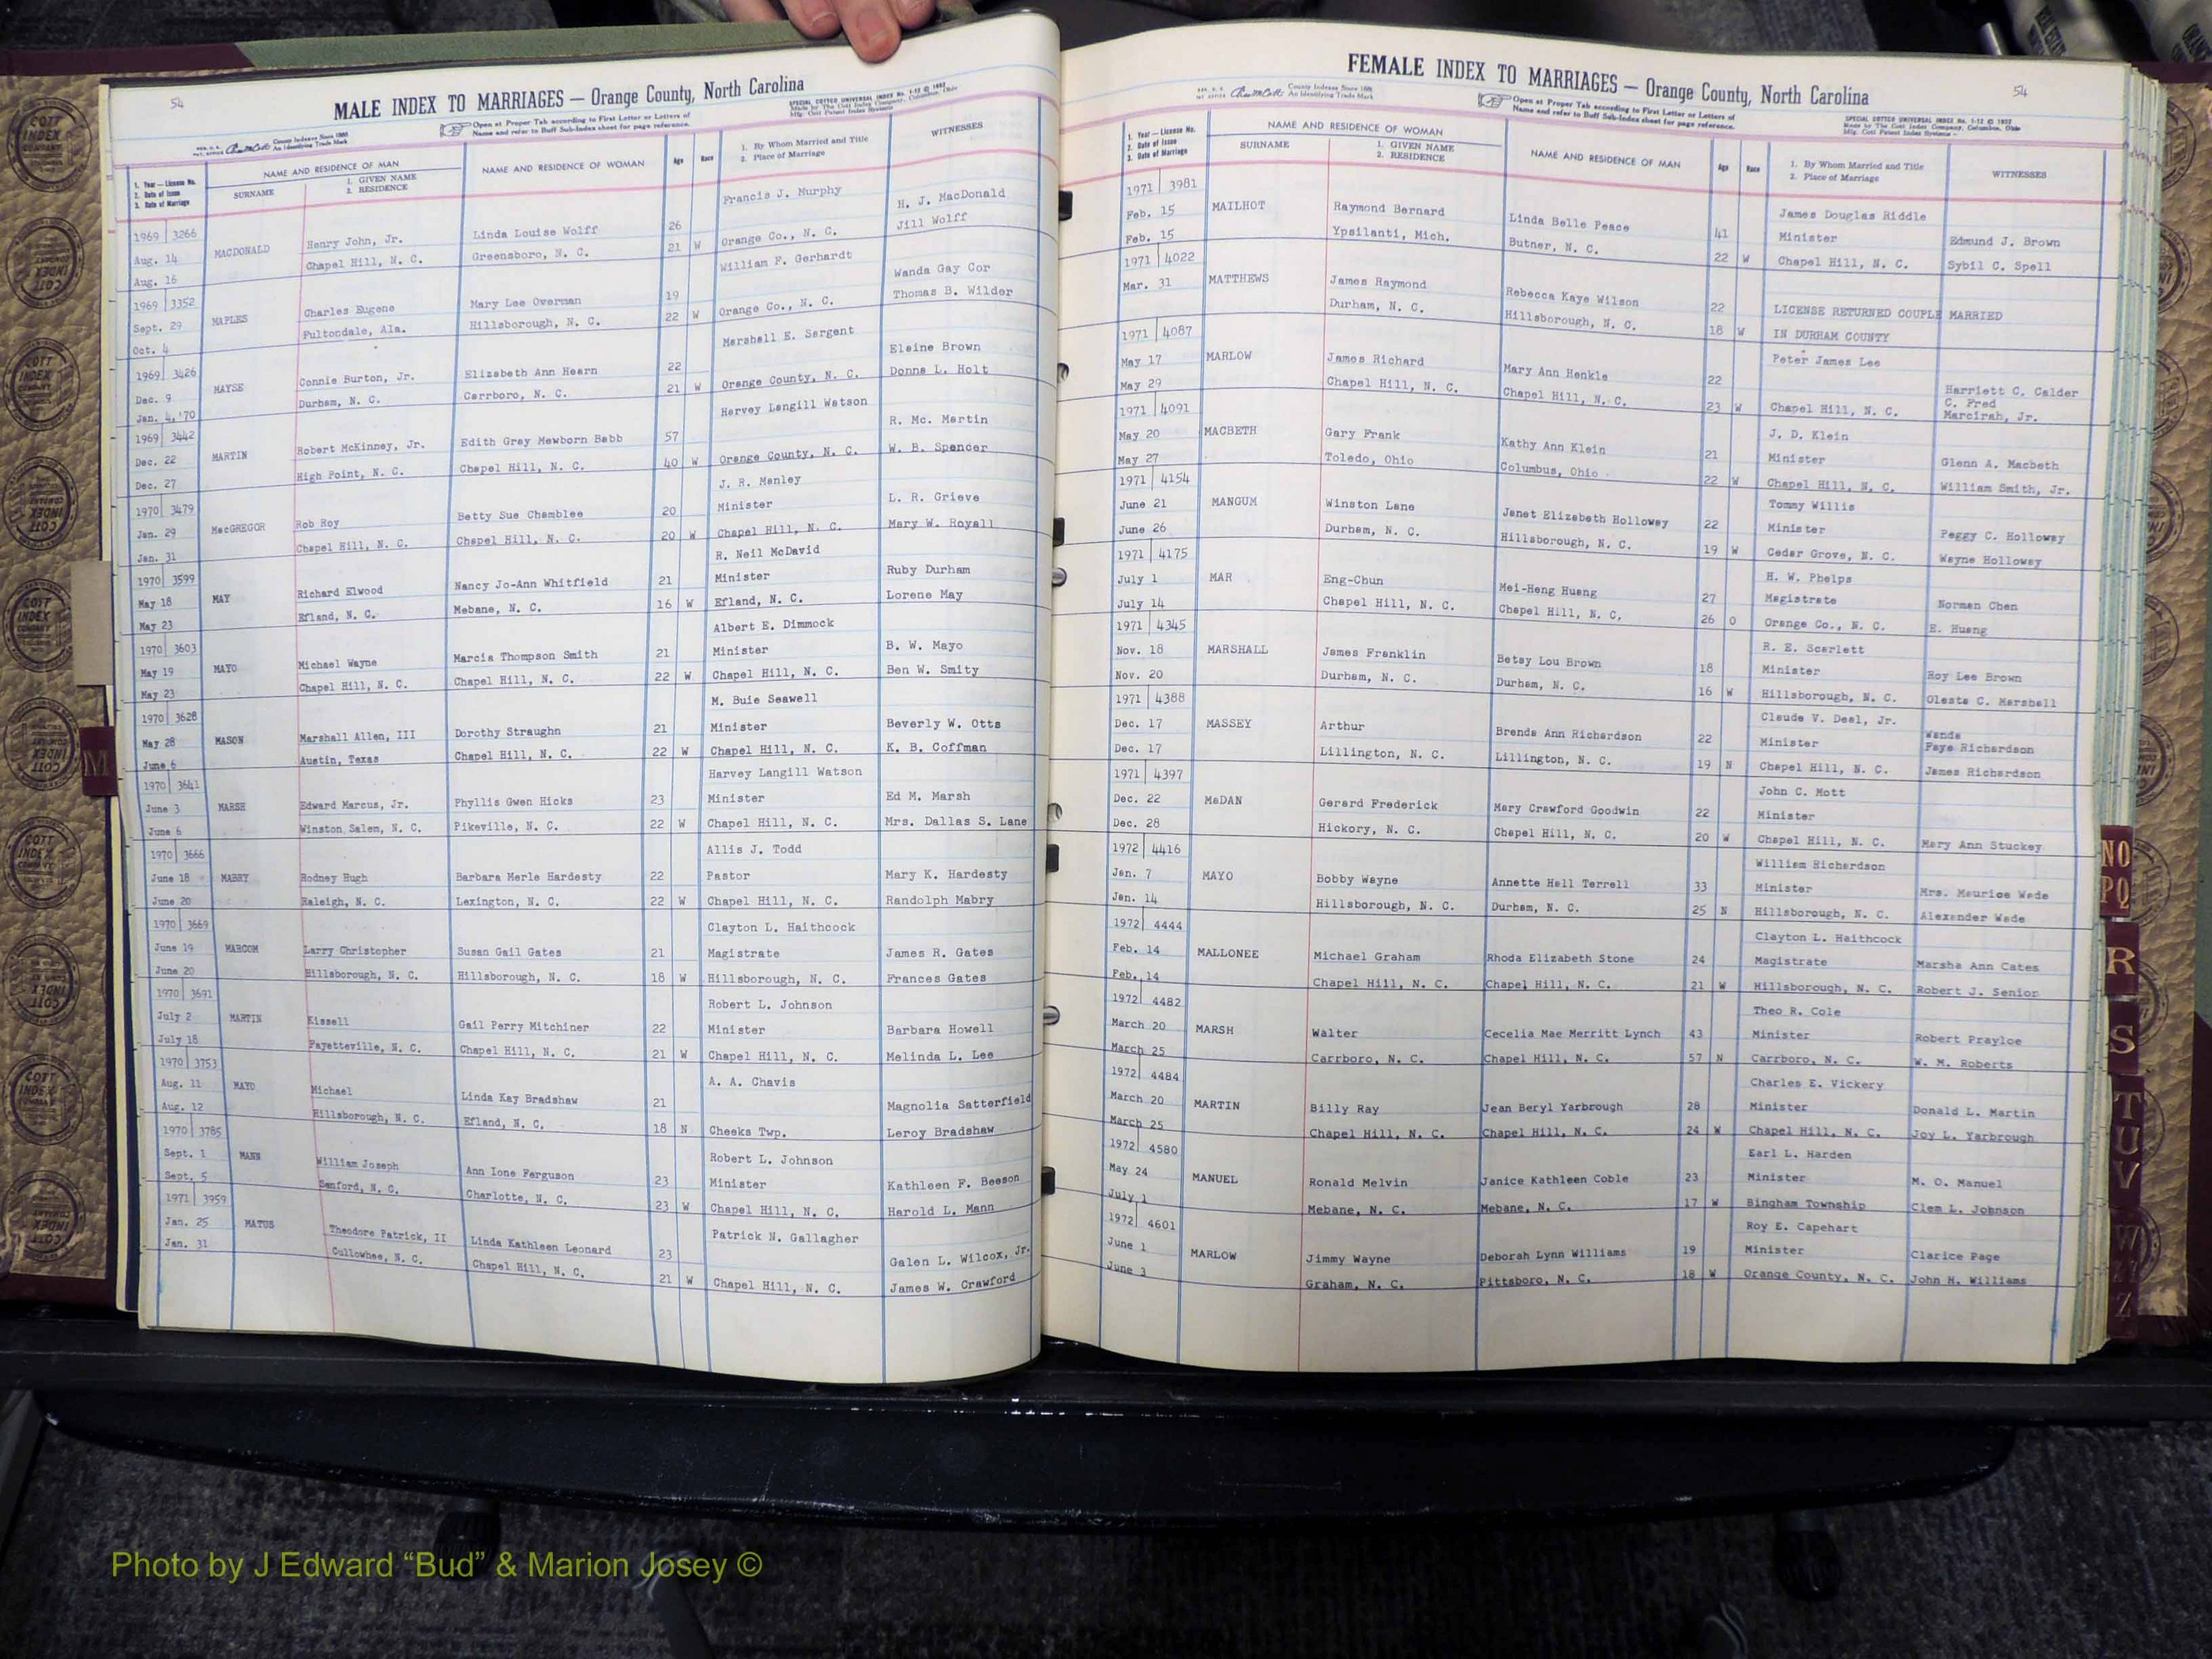 54
MALE INDEX TO MARRIAGES — Orange County, North Carolina
County Indexes Since 1888
An Identifying Trade Mark
Open at Proper Tab according to First Letter or Letters of
Name and refer to Buff Sub-Index sheet for page reference.
SPECIAL COTTCO UNIVERSAL INDEX No. 1-12 © 1952
Made by The Cott Index Company, Columbus, Ohio
1. Year — License No.
2. Date of Issue
3. Date of Marriage
NAME AND RESIDENCE OF MAN
SURNAME
1. GIVEN NAME
2. RESIDENCE
NAME AND RESIDENCE OF WOMAN
Age
Race
1. By Whom Married and Title
2. Place of Marriage
WITNESSES
Francis J. Murphy
1969 3266 Linda Louise Wolff 26 H. J. MacDonald
Aug. 14 MACDONALD Henry John, Jr. Greensboro, N. C. 21 W Orange Co., N. C. Jill Wolff
Aug. 16 Chapel Hill, N. C.
William F. Gerhardt
1969 3352 Charles Eugene Mary Lee Overman 19 Wanda Gay Cor
Sept. 29 MAPLES Fultondale, Ala. Hillsborough, N. C. 22 W Orange Co., N. C. Thomas B. Wilder
Oct. 4
Marshall E. Sargent
1969 3426 Connie Burton, Jr. Elizabeth Ann Hearn 22 Elaine Brown
Dec. 9 MAYSE Durham, N. C. Carrboro, N. C. 21 W Orange County, N. C. Donna L. Holt
Jan. 4, '70
Harvey Langill Watson
1969 3442 Robert McKinney, Jr. Edith Gray Mewborn Babb 57 R. Mc. Martin
Dec. 22 MARTIN High Point, N. C. Chapel Hill, N. C. 40 W Orange County, N. C. W. B. Spencer
Dec. 27
J. R. Manley
1970 3479 Rob Roy Betty Sue Chamblee 20 Minister L. R. Grieve
Jan. 29 MacGREGOR Chapel Hill, N. C. Chapel Hill, N. C. 20 W Chapel Hill, N. C. Mary W. Royall
Jan. 31
R. Neil McDavid
1970 3599 Richard Elwood Nancy Jo-Ann Whitfield 21 Minister Ruby Durham
May 18 MAY Efland, N. C. Mebane, N. C. 16 W Efland, N. C. Lorene May
May 23
Albert E. Dimmock
1970 3603 Michael Wayne Marcia Thompson Smith 21 Minister B. W. Mayo
May 19 MAYO Chapel Hill, N. C. Chapel Hill, N. C. 22 W Chapel Hill, N. C. Ben W. Smity
May 23
M. Buie Seawell
1970 3628 Marshall Allen, III Dorothy Straughn 21 Minister Beverly W. Otts
May 28 MASON Austin, Texas Chapel Hill, N. C. 22 W Chapel Hill, N. C. K. B. Coffman
June 6
Harvey Langill Watson
1970 3641 Edward Marcus, Jr. Phyllis Gwen Hicks 23 Minister Ed M. Marsh
June 3 MARSH Winston Salem, N. C. Pikeville, N. C. 22 W Chapel Hill, N. C. Mrs. Dallas S. Lane
June 6
1970 3666 Allis J. Todd
June 18 MABRY Rodney Hugh Barbara Merle Hardesty 22 Pastor Mary K. Hardesty
June 20 Raleigh, N. C. Lexington, N. C. 22 W Chapel Hill, N. C. Randolph Mabry
1970 3669 Clayton L. Haithcock
June 19 MARCOM Larry Christopher Susan Gail Gates 21 Magistrate James R. Gates
June 20 Hillsborough, N. C. Hillsborough, N. C. 18 W Hillsborough, N. C. Frances Gates
1970 3691 Robert L. Johnson
July 2 MARTIN Kissell Gail Perry Mitchiner 22 Minister Barbara Howell
July 18 Fayetteville, N. C. Chapel Hill, N. C. 21 W Chapel Hill, N. C. Melinda L. Lee
1970 3753 A. A. Chavis
Aug. 11 MAYO Michael Linda Kay Bradshaw 21 Magnolia Satterfield
Aug. 12 Hillsborough, N. C. Efland, N. C. 18 N Cheeks Twp. Leroy Bradshaw
1970 3785 Robert L. Johnson
Sept. 1 MANN William Joseph Ann Ione Ferguson 23 Minister Kathleen F. Beeson
Sept. 5 Sanford, N. C. Charlotte, N. C. 23 W Chapel Hill, N. C. Harold L. Mann
1971 3959 Patrick N. Gallagher
Jan. 25 MATUS Theodore Patrick, II Linda Kathleen Leonard 23 Galen L. Wilcox, Jr.
Jan. 31 Cullowhee, N. C. Chapel Hill, N. C. 21 W Chapel Hill, N. C. James W. Crawford
M
FEMALE INDEX TO MARRIAGES — Orange County, North Carolina
54
County Indexes Since 1888
An Identifying Trade Mark
Open at Proper Tab according to First Letter or Letters of
Name and refer to Buff Sub-Index sheet for page reference.
SPECIAL COTTCO UNIVERSAL INDEX No. 1-12 © 1952
Made by The Cott Index Company, Columbus, Ohio
1. Year — License No.
2. Date of Issue
3. Date of Marriage
NAME AND RESIDENCE OF WOMAN
SURNAME
1. GIVEN NAME
2. RESIDENCE
NAME AND RESIDENCE OF MAN
Age
Race
1. By Whom Married and Title
2. Place of Marriage
WITNESSES
1971 3981 James Douglas Riddle
Feb. 15 MAILHOT Raymond Bernard Linda Belle Peace 41 Minister Edmund J. Brown
Feb. 15 Ypsilanti, Mich. Butner, N. C. 22 W Chapel Hill, N. C. Sybil C. Spell
1971 4022
Mar. 31 MATTHEWS James Raymond Rebecca Kaye Wilson 22 LICENSE RETURNED COUPLE MARRIED
Durham, N. C. Hillsborough, N. C. 18 W IN DURHAM COUNTY
1971 4087 Peter James Lee
May 17 MARLOW James Richard Mary Ann Henkle 22 Harriett C. Calder
May 29 Chapel Hill, N. C. Chapel Hill, N. C. 23 W Chapel Hill, N. C. C. Fred Marcirah, Jr.
1971 4091 J. D. Klein
May 20 MACBETH Gary Frank Kathy Ann Klein 21 Minister Glenn A. Macbeth
May 27 Toledo, Ohio Columbus, Ohio 22 W Chapel Hill, N. C. William Smith, Jr.
1971 4154 Tommy Willis
June 21 MANGUM Winston Lane Janet Elizabeth Holloway 22 Minister Peggy C. Holloway
June 26 Durham, N. C. Hillsborough, N. C. 19 W Cedar Grove, N. C. Wayne Holloway
1971 4175 H. W. Phelps
July 1 MAR Eng-Chun Mei-Heng Huang 27 Magistrate Norman Chen
July 14 Chapel Hill, N. C. Chapel Hill, N. C, 26 O Orange Co., N. C. E. Huang
1971 4345 R. E. Scarlett
Nov. 18 MARSHALL James Franklin Betsy Lou Brown 18 Minister Roy Lee Brown
Nov. 20 Durham, N. C. Durham, N. C. 16 W Hillsborough, N. C. Oleste C. Marshall
1971 4388 Claude V. Deal, Jr.
Dec. 17 MASSEY Arthur Brenda Ann Richardson 22 Minister Wanda Faye Richardson
Dec. 17 Lillington, N. C. Lillington, N. C. 19 N Chapel Hill, N. C. James Richardson
1971 4397 John C. Mott
Dec. 22 MaDAN Gerard Frederick Mary Crawford Goodwin 22 Minister
Dec. 28 Hickory, N. C. Chapel Hill, N. C. 20 W Chapel Hill, N. C. Mary Ann Stuckey
1972 4416 William Richardson
Jan. 7 MAYO Bobby Wayne Annette Hall Terrell 33 Minister Mrs. Maurice Wade
Jan. 14 Hillsborough, N. C. Durham, N. C. 25 N Hillsborough, N. C. Alexander Wade
1972 4444 Clayton L. Haithcock
Feb. 14 MALLONEE Michael Graham Rhoda Elizabeth Stone 24 Magistrate Marsha Ann Cates
Feb. 14 Chapel Hill, N. C. Chapel Hill, N. C. 21 W Hillsborough, N. C. Robert J. Senior
1972 4482 Theo R. Cole
March 20 MARSH Walter Cecelia Mae Merritt Lynch 43 Minister Robert Prayloe
March 25 Carrboro, N. C. Chapel Hill, N. C. 57 N Carrboro, N. C. W. M. Roberts
1972 4484 Charles E. Vickery
March 20 MARTIN Billy Ray Jean Beryl Yarbrough 28 Minister Donald L. Martin
March 25 Chapel Hill, N. C. Chapel Hill, N. C. 24 W Chapel Hill, N. C. Joy L. Yarbrough
1972 4580 Earl L. Harden
May 24 MANUEL Ronald Melvin Janice Kathleen Coble 23 Minister M. O. Manuel
July 1 Mebane, N. C. Mebane, N. C. 17 W Bingham Township Clem L. Johnson
1972 4601 Roy E. Capehart
June 1 MARLOW Jimmy Wayne Deborah Lynn Williams 19 Minister Clarice Page
June 3 Graham, N. C. Pittsboro, N. C. 18 W Orange County, N. C. John H. Williams
NO
PQ
R
S
T
U
V
W
Z
Photo by J Edward “Bud” & Marion Josey ©